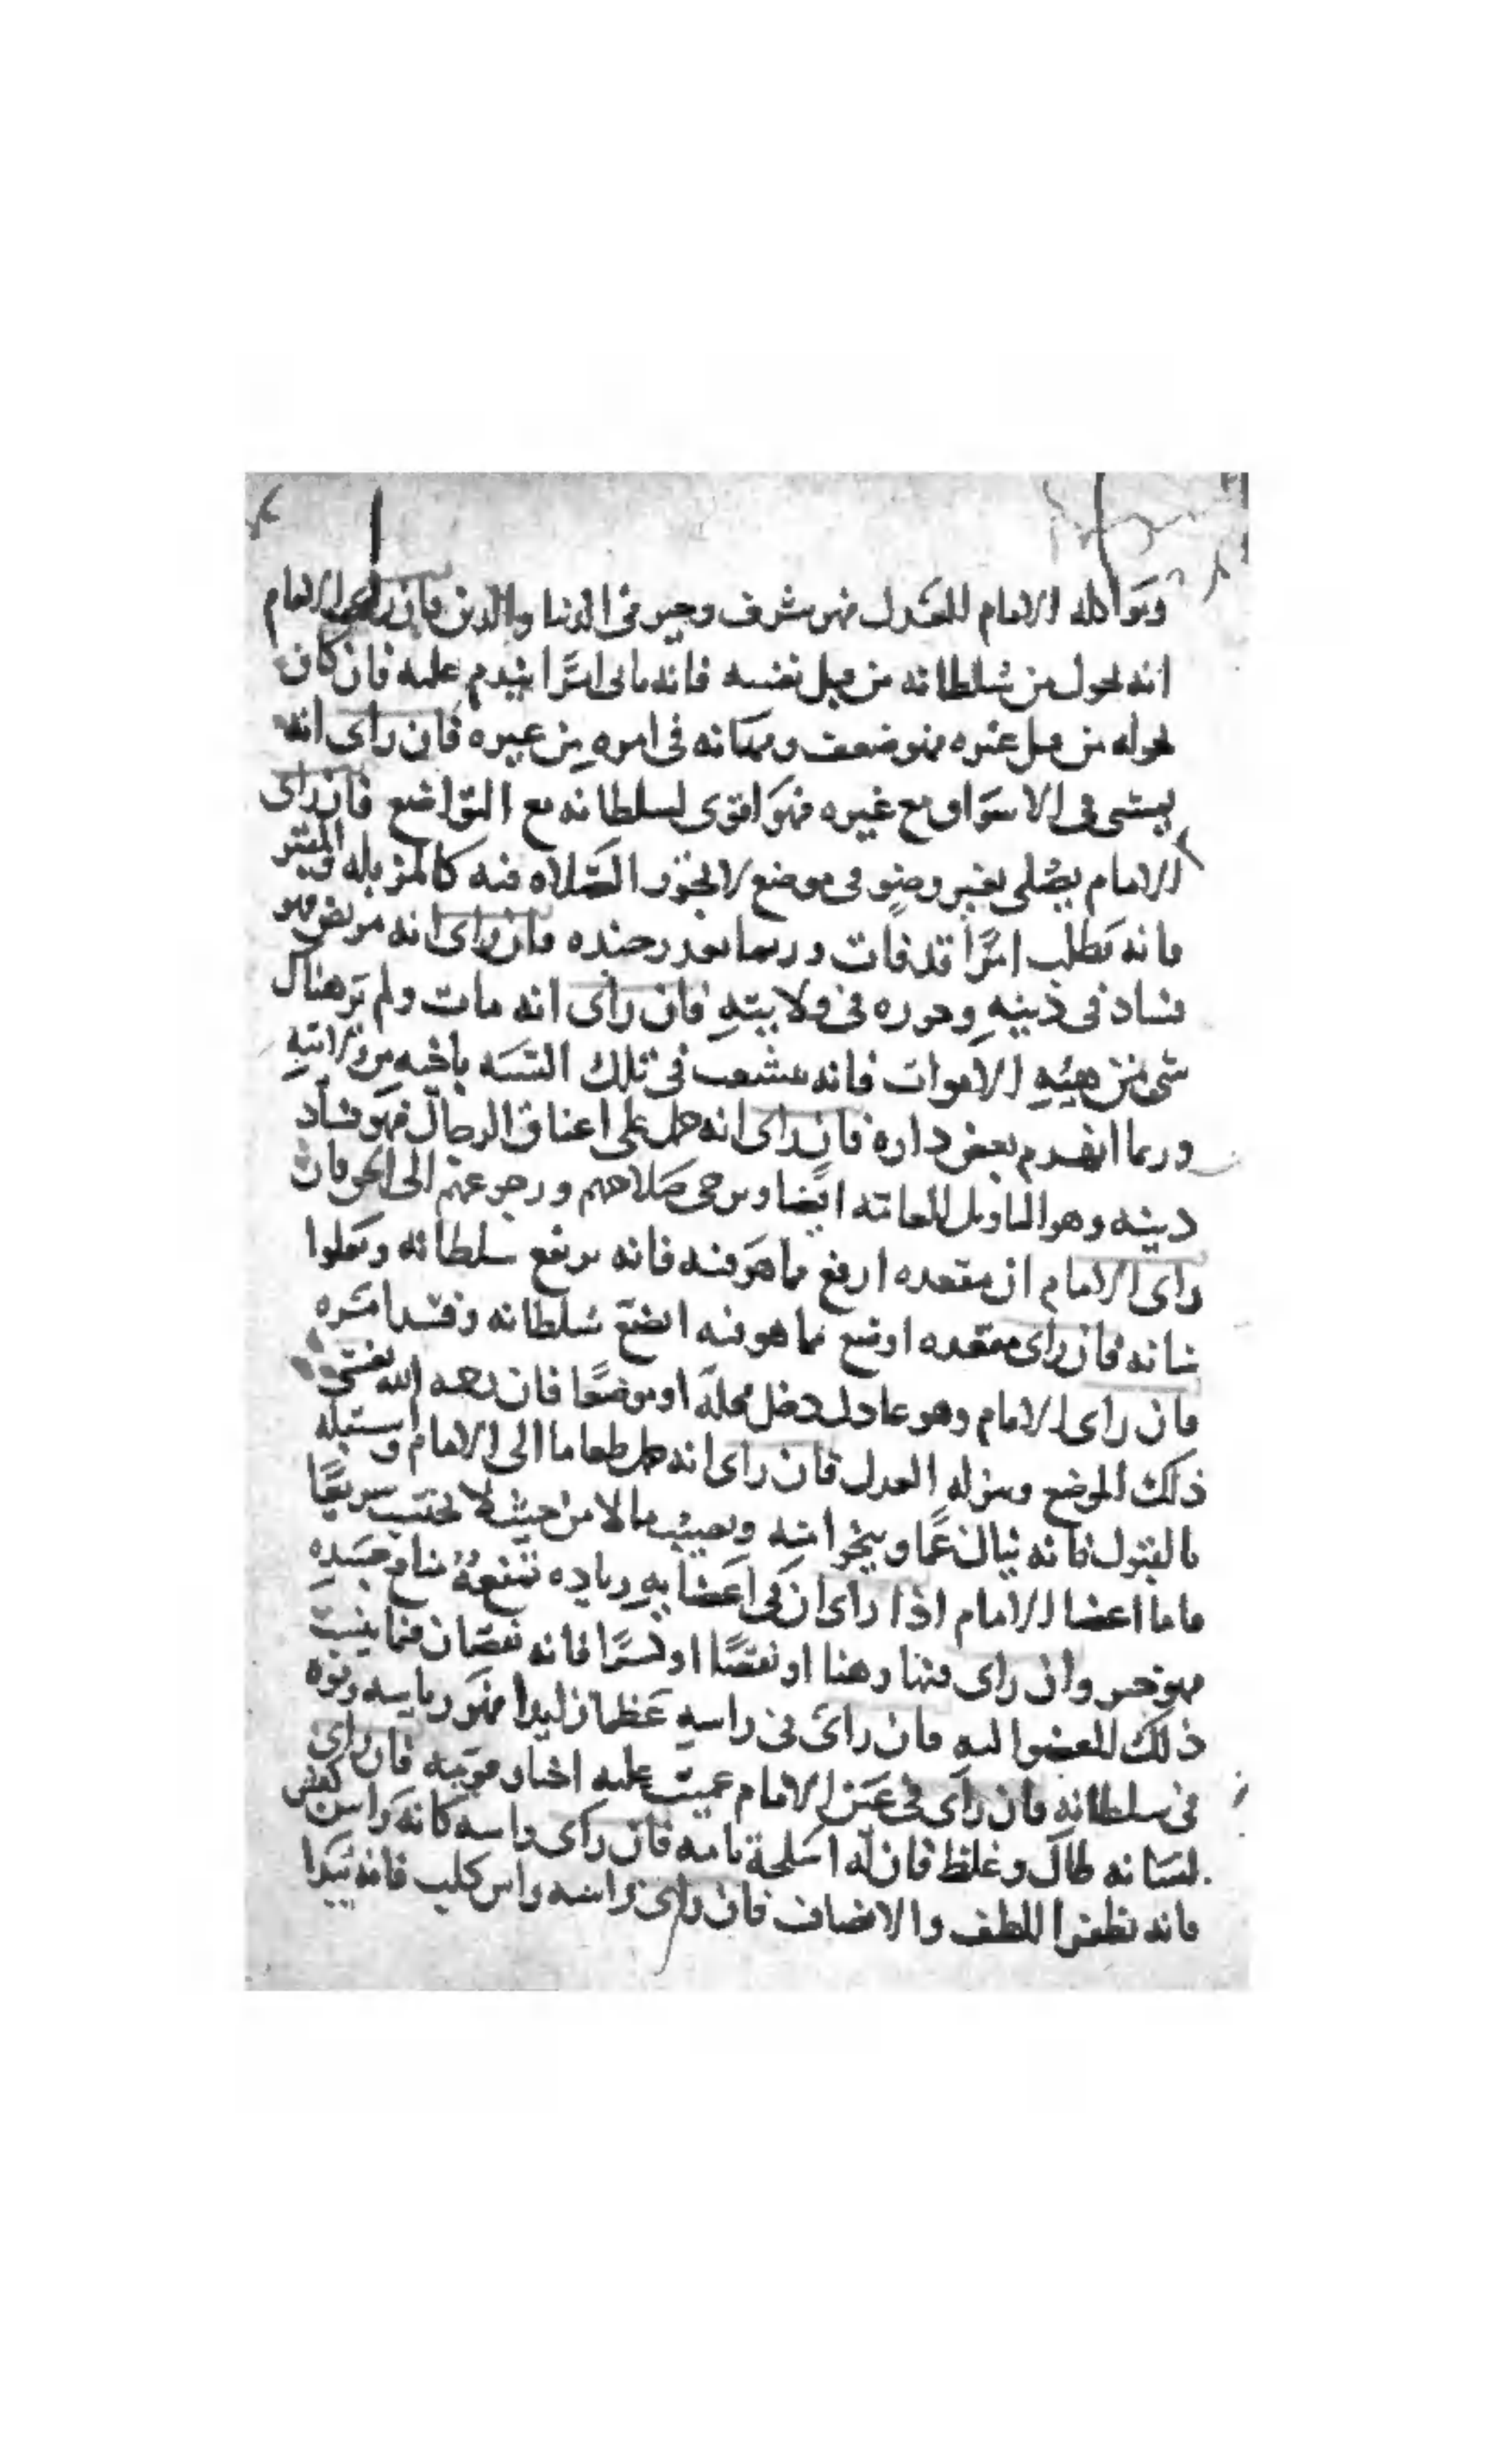 ومواكله الامام للعدل فهو شرف وخير فى الدنيا والدين فان راى الامام
انه تحول من سلطانه من قبل نفسه فانه ياتى امرًا يندم عليه فان كان
تحوله من قبل غيره فهو ضعف ومكانه فى امره من غيره فان راى انه
يمشى فى الاسواق مع غيره فهو اقوى لسلطانه مع التواضع فان راى
الامام يصلى بغير وضو فى موضع لا تجوز الصلاه فيه كالمزبله والقبر
فانه يطلب امرًا قد فات وربما جنده فان راى انه مريض فهو
فساد فى دينه وجوره فى ولايته فان راى انه مات ولم تر هناك
شى من هيئه الاموات فانه فى تلك السنه
وربما انهدم بعض داره فان راى انه حمل على اعناق الرجال فهو فساد
دينه وهو التاويل للعامه ايضا ويرجى صلاحهم ورجوعهم الى الحق فان
راى الامام ان مقعده ارفع مما هو فيه فانه يرتفع سلطانه ويعلوا
شانه فان راى مقعده اوضع مما هو فيه اتضع سلطانه وفسد امره
فان راى الامام وهو عادل دخل محلة او موضعًا فان رحمه الله تغشى
ذلك الموضع وينزله العدل فان راى انه حمل طعاما الى الامام واستقبله
بالقبول فانه ينال غمًا وينجوا منه ويصيب مالا من حيث لا يحتسب سريعًا
فاما اعضا الامام اذا راى ان فى اعضايه زياده جسده
فهو خير وان راى فيها وهنا او نقصًا او كسرًا فانه نقصان فيما ينسب
ذلك العضو اليه فان راى فى راسه عظما زايدا فهو رياسه وقوه
فى سلطانه فان راى فى عين الامام عميت عليه اخبار فان راى
لسانه طال وغلظ فان له اسلحة تامه فان راى راسه كانه راس كبش
فانه يظفر اللطف والانصاف فان راى راسه راس كلب فانه يبدا